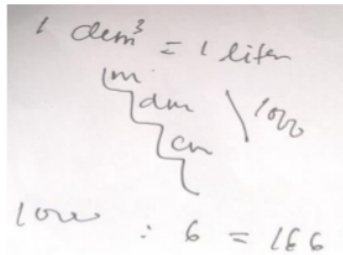 1 dm³ = 1 liter
m
dm
cm
1000
1000 : 6 = 166